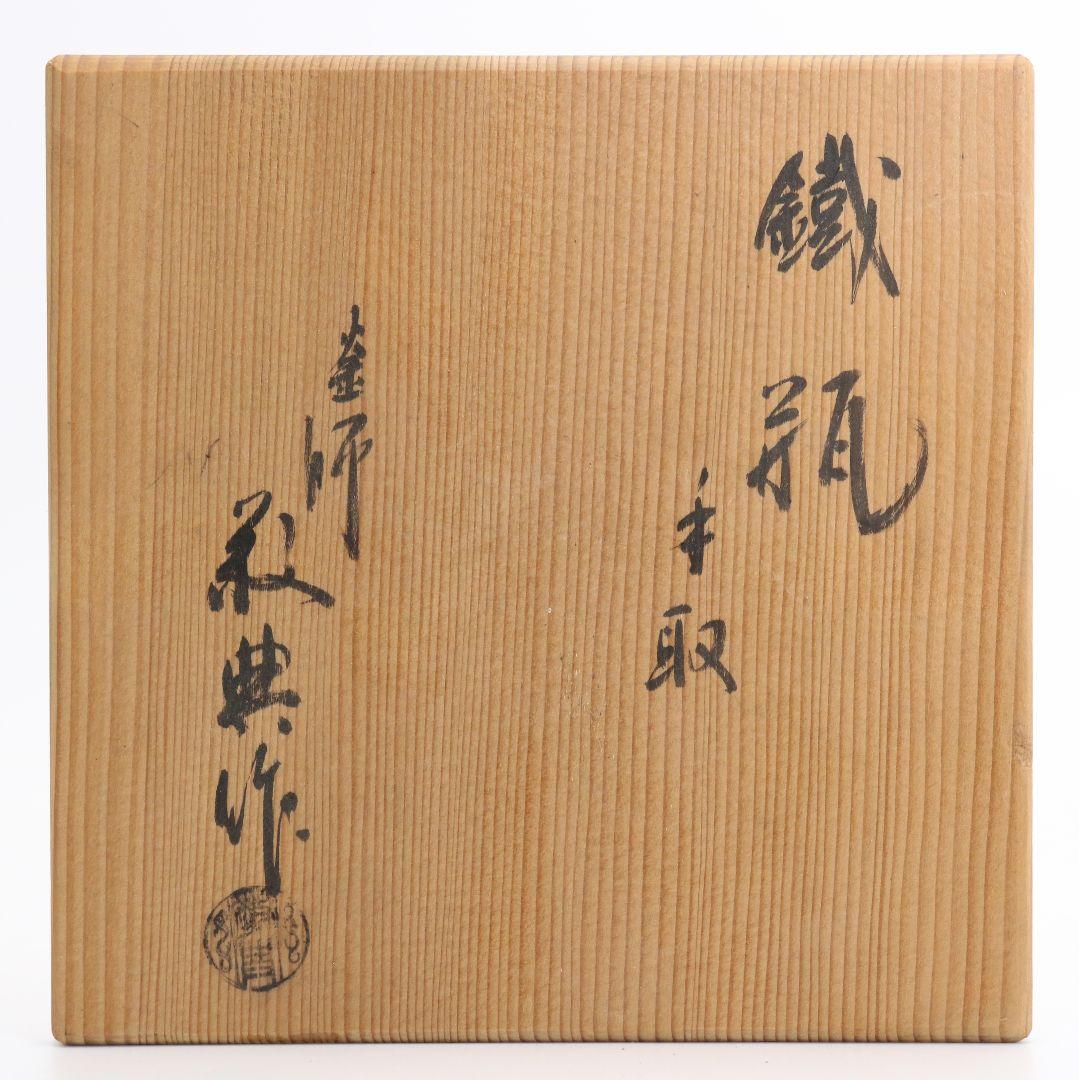 鐵瓶
手取
釜師
敬典作